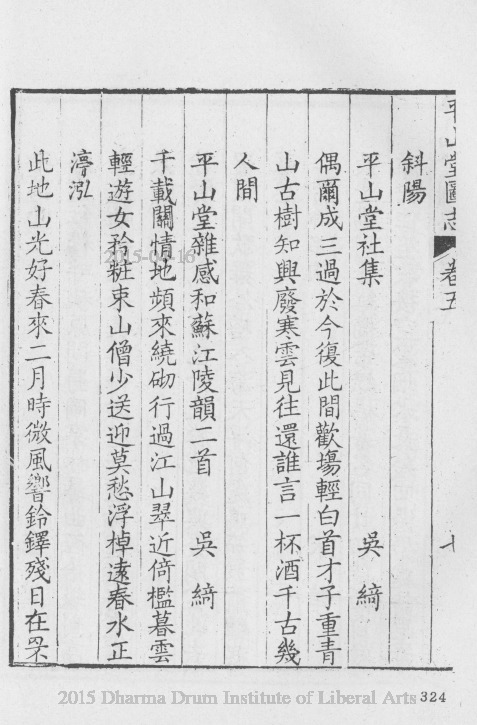 平山堂圖志 卷五 七
斜陽
平山堂社集 吳綺
偶爾成三過於今復此間歡場輕白首才子重青
山古樹知興廢寒雲見往還誰言一杯酒千古幾
人間
平山堂雜感和蘇江陵韻二首 吳綺
千載關情地頻來繞砌行過江山翠近倚檻暮雲
輕遊女矜粧束山僧少送迎莫愁浮棹遠春水正
渟泓
此地山光好春來二月時微風響鈴鐸殘日在罘
2015-04-16
2015 Dharma Drum Institute of Liberal Arts 324